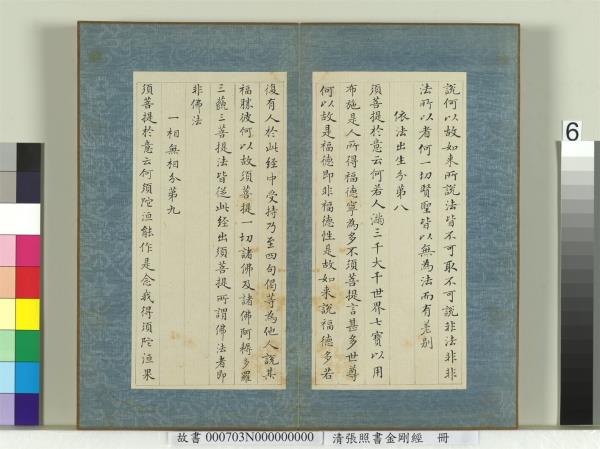 說何以故如來所說法皆不可取不可說非法非非
法所以者何一切賢聖皆以無為法而有差別
依法出生分第八
須菩提於意云何若人滿三千大千世界七寶以用
布施是人所得福德寧為多不須菩提言甚多世尊
何以故是福德即非福德性是故如來說福德多若
復有人於此經中受持乃至四句偈等為他人說其
福勝彼何以故須菩提一切諸佛及諸佛阿耨多羅
三藐三菩提法皆從此經出須菩提所謂佛法者即
非佛法
一相無相分第九
須菩提於意云何須陀洹能作是念我得須陀洹果
6
故書 000703N000000000 清張照書金剛經 冊